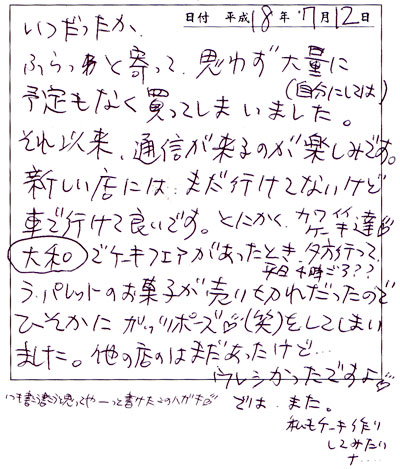 日付 平成18年7月12日
いつだったか、
ふらっぁと寄って、思わず大量に
(自分にしては)
予定もなく買ってしまいました。
それ以来、通信が来るのが楽しみです。
新しい店には、まだ行けてないけど
車で行けて良いです。とにかく、カワイイ
ケーキ達♡
大和。でケーキフェアがあったとき、夕方行って、
平日4時ごろ??
ラ・パレットのお菓子が売り切れだったので
ひそかにガッツポーズ♡(笑)をしてしまい
ました。他の店のはまだあったけど…
ウレシかったですよ♡
いつか書こうと思ってやーっと書けたこのハガキ♡
では、また。
私もケーキ作り
してみたい
ナ....